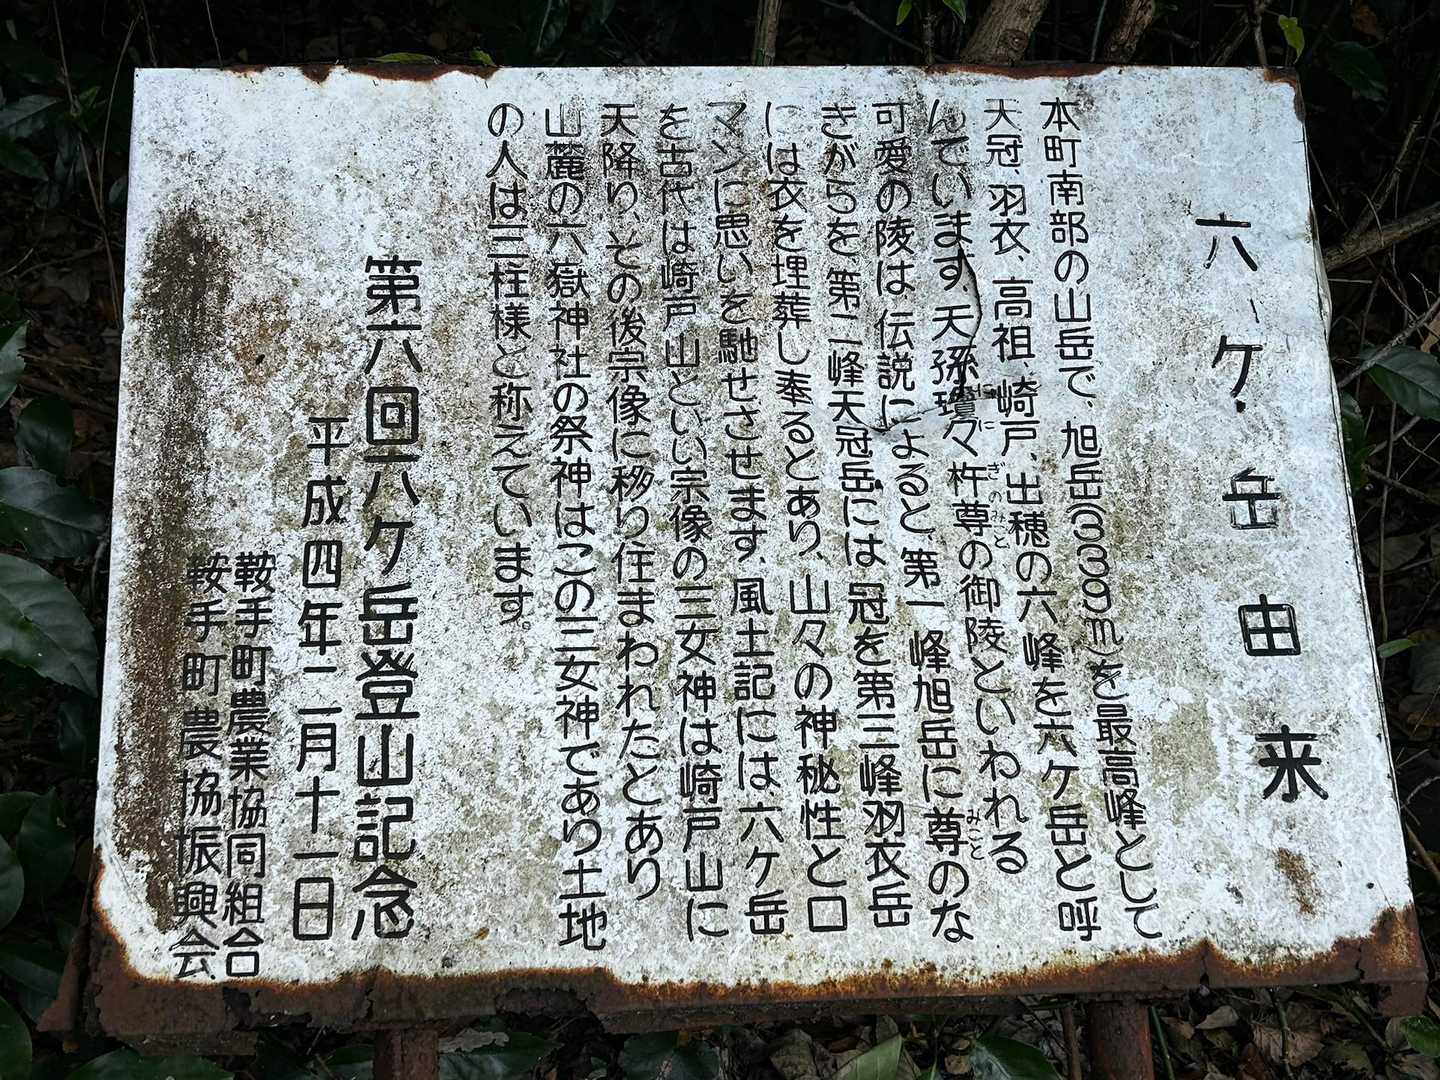 六ヶ岳由来
本町南部の山岳で、旭岳(339m)を最高峰として
天冠、羽衣、高祖、崎戸、出穂の六峰を六ケ岳と呼
んでいます。天孫瓊々杵尊の御陵といわれる
にに
ぎのみこと
可愛の陵は、伝説によると、第一峰旭岳に尊のな
みこと
きがらを第二峰天冠岳には冠を第三峰羽衣岳
には衣を埋葬し奉るとあり、山々の神秘性とロ
マンに思いを馳せさせます。風土記には六ケ岳
を古代は崎戸山といい宗像の三女神は崎戸山に
天降り、その後宗像に移り住まわれたとあり
山麓の六嶽神社の祭神はこの三女神であり土地
の人は三柱様と称えています。
第六回六ケ岳登山記念
平成四年二月十一日
鞍手町農業協同組合
鞍手町農協振興会